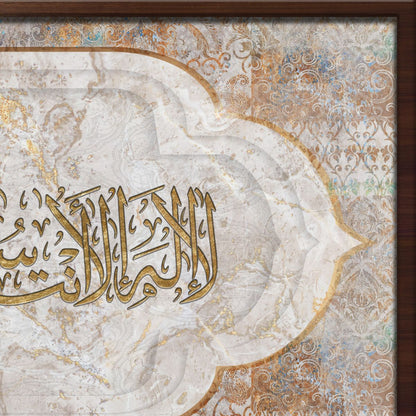 لا إله إلا أنت